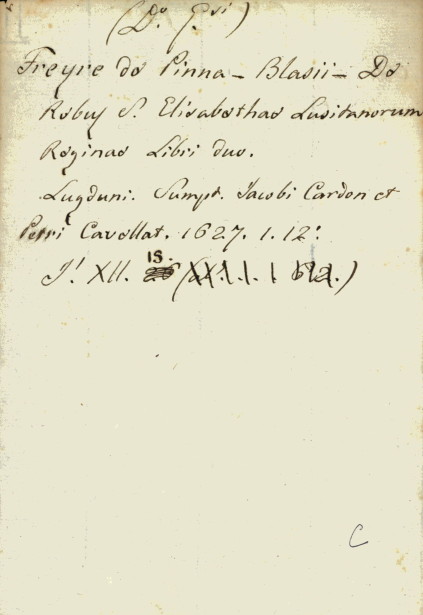 (Do. Gsi)
Freyre de Pinna - Blasii - De
Rebus S. Elisabethae Lusitanorum
Reginae Libri duo.
Lugduni. Sumpt. Jacobi Cardon et
Petri Cavellat. 1627. 1. 12º
J! XII. 18.
C